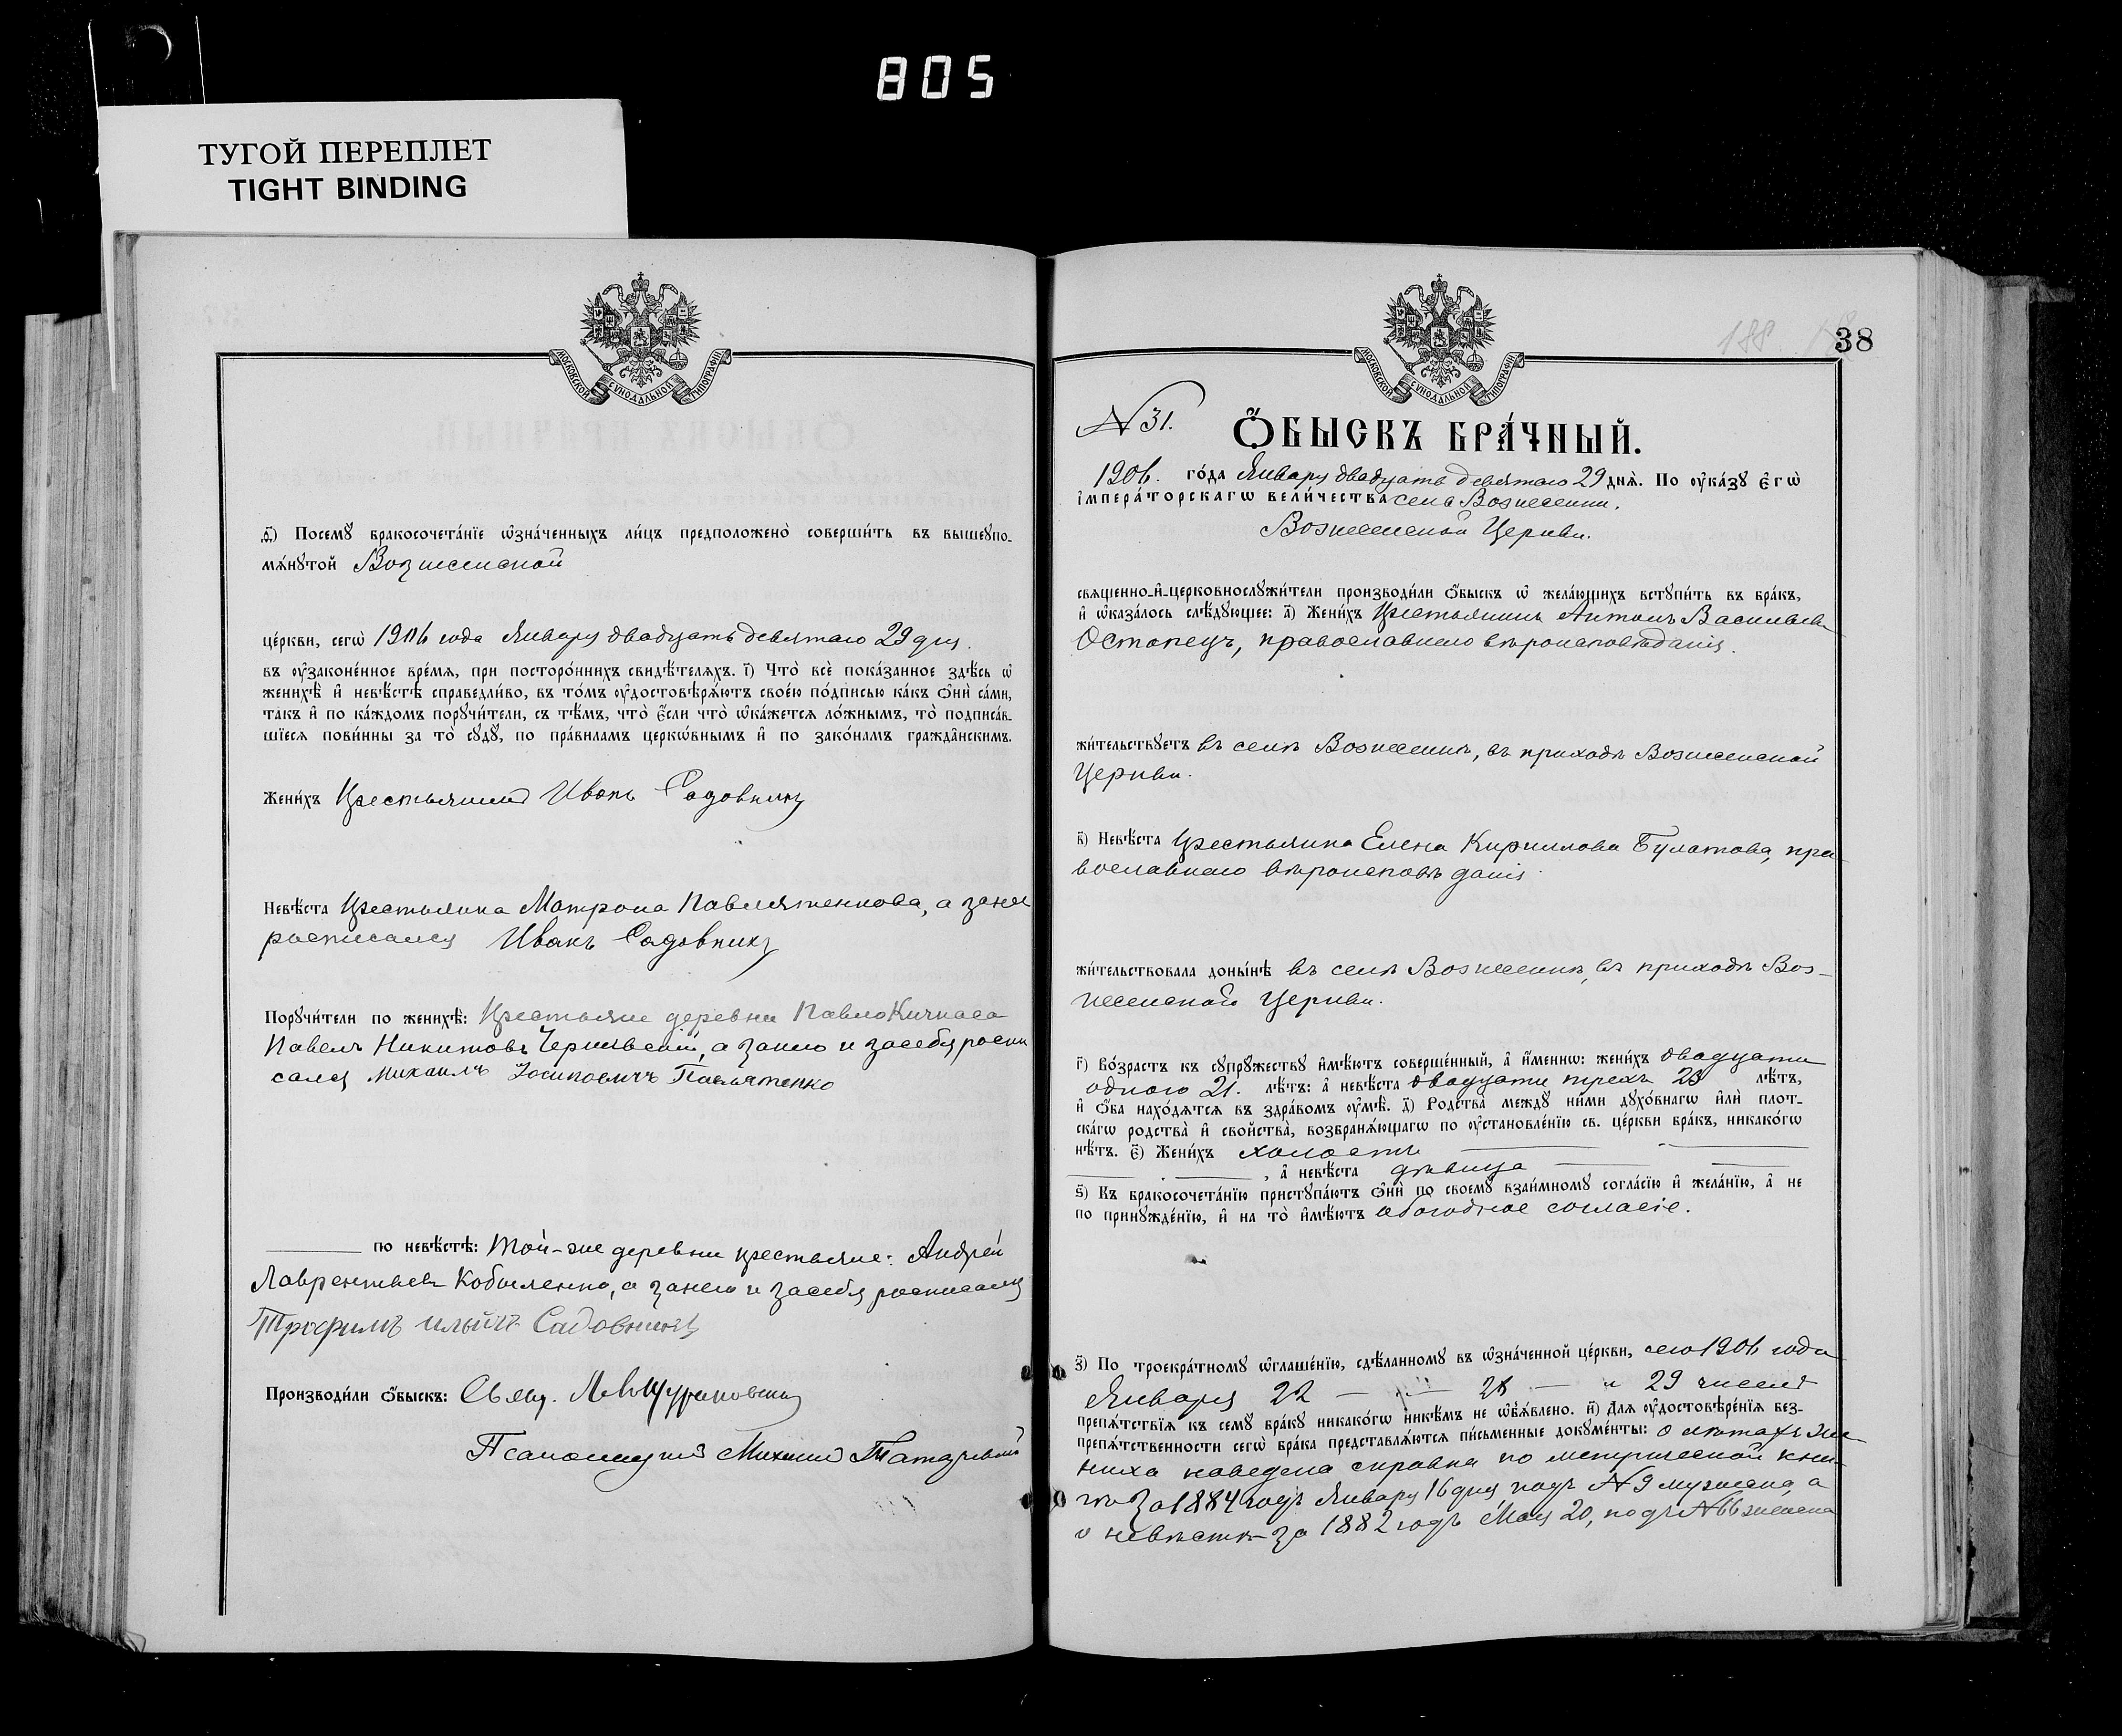 805
ТУГОЙ ПЕРЕПЛЕТ
TIGHT BINDING
МОСКОВСКОЙ СѴНОДАЛЬНОЙ ТИПОГРАФІИ
ѳ҃) Посемꙋ̀ бракосочета́нїе ѡ҆зна́ченныхъ ли́цъ предположено̀ соверши́ть въ вышеꙋпо-
мѧ́нꙋтой Вознесенской
це́ркви, сегѡ̀ 1906 года Января двадцать девятаго 29 дня.
въ ᲂу҆зако́ненное вре́мѧ, при посторо́ннихъ свидѣ́телѧхъ. і҃) Что̀ всѐ пока́занное здѣ́сь ѡ҆
женихѣ̀ и҆ невѣ́стѣ справедли́во, въ то́мъ ᲂу҆достовѣрѧ́ютъ свое́ю по́дписью ка́къ ѻ҆нѝ са́ми,
та́къ и҆ по ка́ждомъ порꙋчи́тели, съ тѣ́мъ, что̀ є҆́сли что̀ ѡ҆ка́жетсѧ ло́жнымъ, то̀ подписа́в-
шїесѧ пови́нны за то̀ сꙋдꙋ̀, по пра́виламъ церкѡ́внымъ и҆ по зако́намъ гражда̑нскимъ.
Жени́хъ Крестьянинъ Иванъ Садовникъ
Невѣ́ста Крестьянка Матрона Павлятенкова, а за нея
росписался Иванъ Садовникъ
Порꙋчи́тели по женихѣ̀: Крестьяне деревни Павло Кичкаса
Павелъ Никитовъ Чернявскій, а за него и за себя роспи
сался Михаилъ Іосиповичъ Павлятенко
по невѣ́стѣ: Той-же деревни крестьяне: Андрей
Лаврентьевъ Кобыленко, а за него и за себя росписался
Трофимъ Ильичъ Садовникъ
Производи́ли ѻ҆́быскъ: Свящ.
Псаломщикъ Михаилъ
188
38
МОСКОВСКОЙ СѴНОДАЛЬНОЙ ТИПОГРАФІИ
N 31.
Ѻ҆́БЫСКЪ БРА́ЧНЫЙ.
1906. го́да Января двадцать девятаго 29 днѧ̀. По ᲂу҆ка́зꙋ Є҆гѡ̀
і҆мпера́торскагѡ вели́чества села Вознесенки,
Вознесенской Церкви.
свѧще́нно-и҆-церковнослꙋжи́тели производи́ли ѻ҆́быскъ ѡ҆ жела́ющихъ встꙋпи́ть въ бра́къ,
и҆ ѡ҆каза́лось слѣ́дꙋющее: а҃) Жени́хъ Крестьянинъ Антонъ Васильевъ
Остапецъ, православнаго вѣроисповѣданія.
жи́тельствꙋетъ въ селѣ Вознесенкѣ, въ приходѣ Вознесенской
Церкви.
в҃) Невѣ́ста Крестьянка Елена Кириллова Булатова, пра-
вославнаго вѣроисповѣданія.
жи́тельствовала доны́нѣ въ селѣ Вознесенкѣ, въ приходѣ Воз-
несенской Церкви.
г҃) Во́зрастъ къ сꙋпрꙋ́жествꙋ и҆мѣ́ютъ соверше́нный, а҆ и҆́меннѡ: жени́хъ двадцати
одного 21. лѣ́тъ: а҆ невѣ́ста двадцати трехъ 23 лѣ́тъ,
и҆ ѻ҆́ба нахо́дѧтсѧ въ здра́вомъ ᲂу҆мѣ̀. д҃) Родства̀ междꙋ̀ ни́ми дꙋхо́внагѡ и҆лѝ плот-
ска́гѡ родства̀ и҆ сво́йства, возбранѧ́ющагѡ по ᲂу҆становле́нїю св. це́ркви бра́къ, никако́гѡ
нѣ́тъ. є҃) Жени́хъ холостъ
, а҆ невѣ́ста дѣвица
ѕ҃) Къ бракосочета́нїю пристꙋпа́ютъ ѻ҆нѝ по своемꙋ̀ взаи́мномꙋ согла́сїю и҆ жела́нїю, а҆ не
по принꙋжде́нїю, и҆ на то̀ и҆мѣ́ютъ обоюдное согласіе.
з҃) По троекра́тномꙋ ѡ҆глаше́нїю, сдѣ́ланномꙋ въ ѡ҆зна́ченной це́ркви, сего 1906 года
Января 22 — — и 29 чиселъ
препѧ́тствїѧ къ семꙋ̀ бра́кꙋ никако́гѡ никѣ́мъ не ѡ҆б̾ѧ́влено. и҃) Длѧ ᲂу҆достовѣре́нїѧ без-
препѧ́тственности сегѡ̀ бра́ка представлѧ́ютсѧ пи́сьменные докꙋме́нты: о лѣтахъ же-
ниха наведена справка по метрической кни-
гѣ за 1884 годъ Января 16 дня подъ N 9 мужеска, а
о невѣстѣ за 1882 годъ Мая 20, подъ N 66 женска